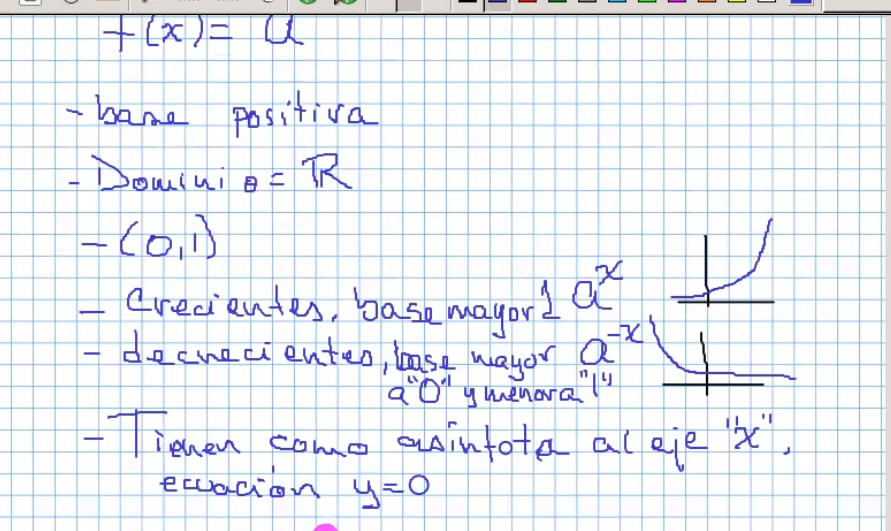 f(x)= a
- base positiva
- Dominio = ℝ
- (0,1)
- Crecientes, base mayor 1 a^x
- decrecientes, base mayor a^-x
a "0" y menor a "1"
- Tienen como asíntota al eje "x",
ecuación y=0